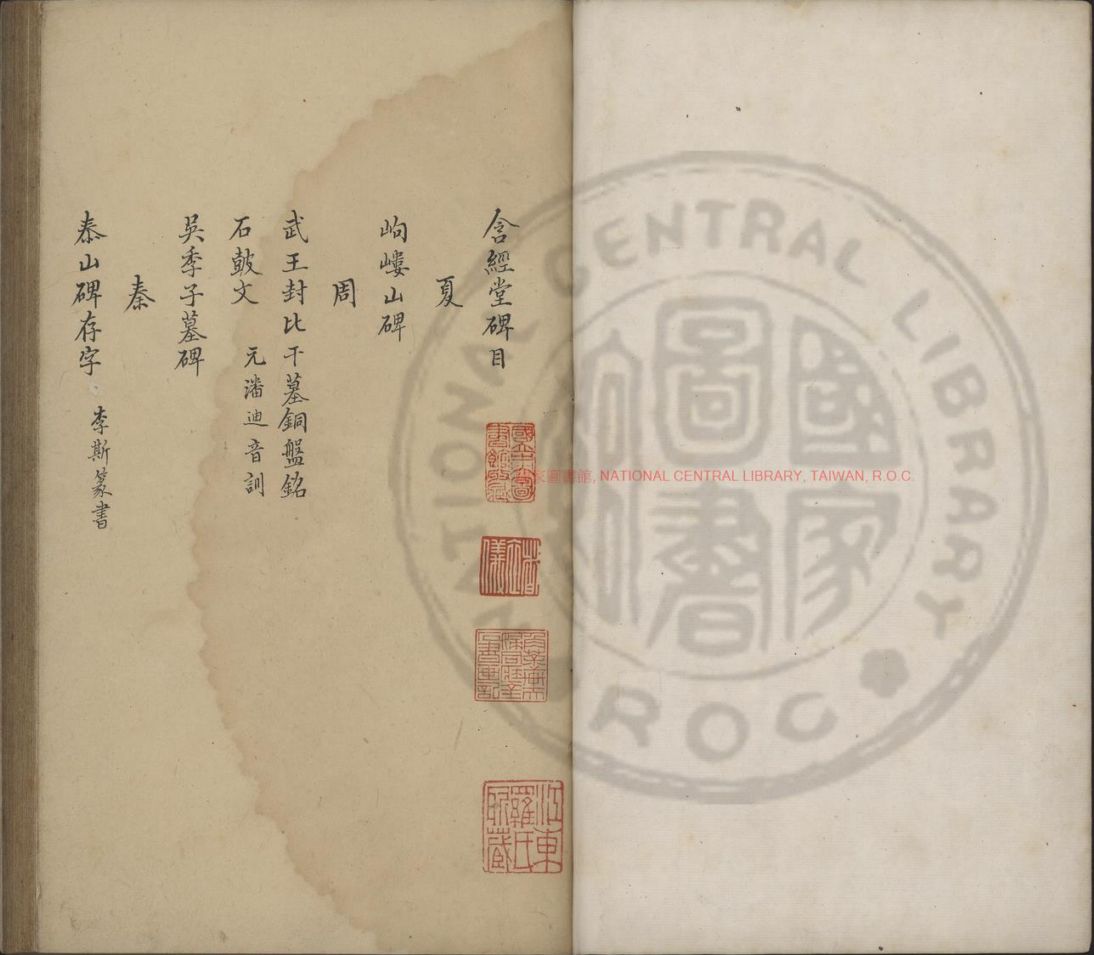 含經堂碑目
夏
岣嶁山碑
周
武王封比干墓銅盤銘
石鼓文 元潘迪音訓
吳季子墓碑
秦
泰山碑存字 李斯篆書
江東羅氏所藏
國家圖書
NATIONAL CENTRAL LIBRARY
R.O.C
家圖書館, NATIONAL CENTRAL LIBRARY, TAIWAN, R.O.C.